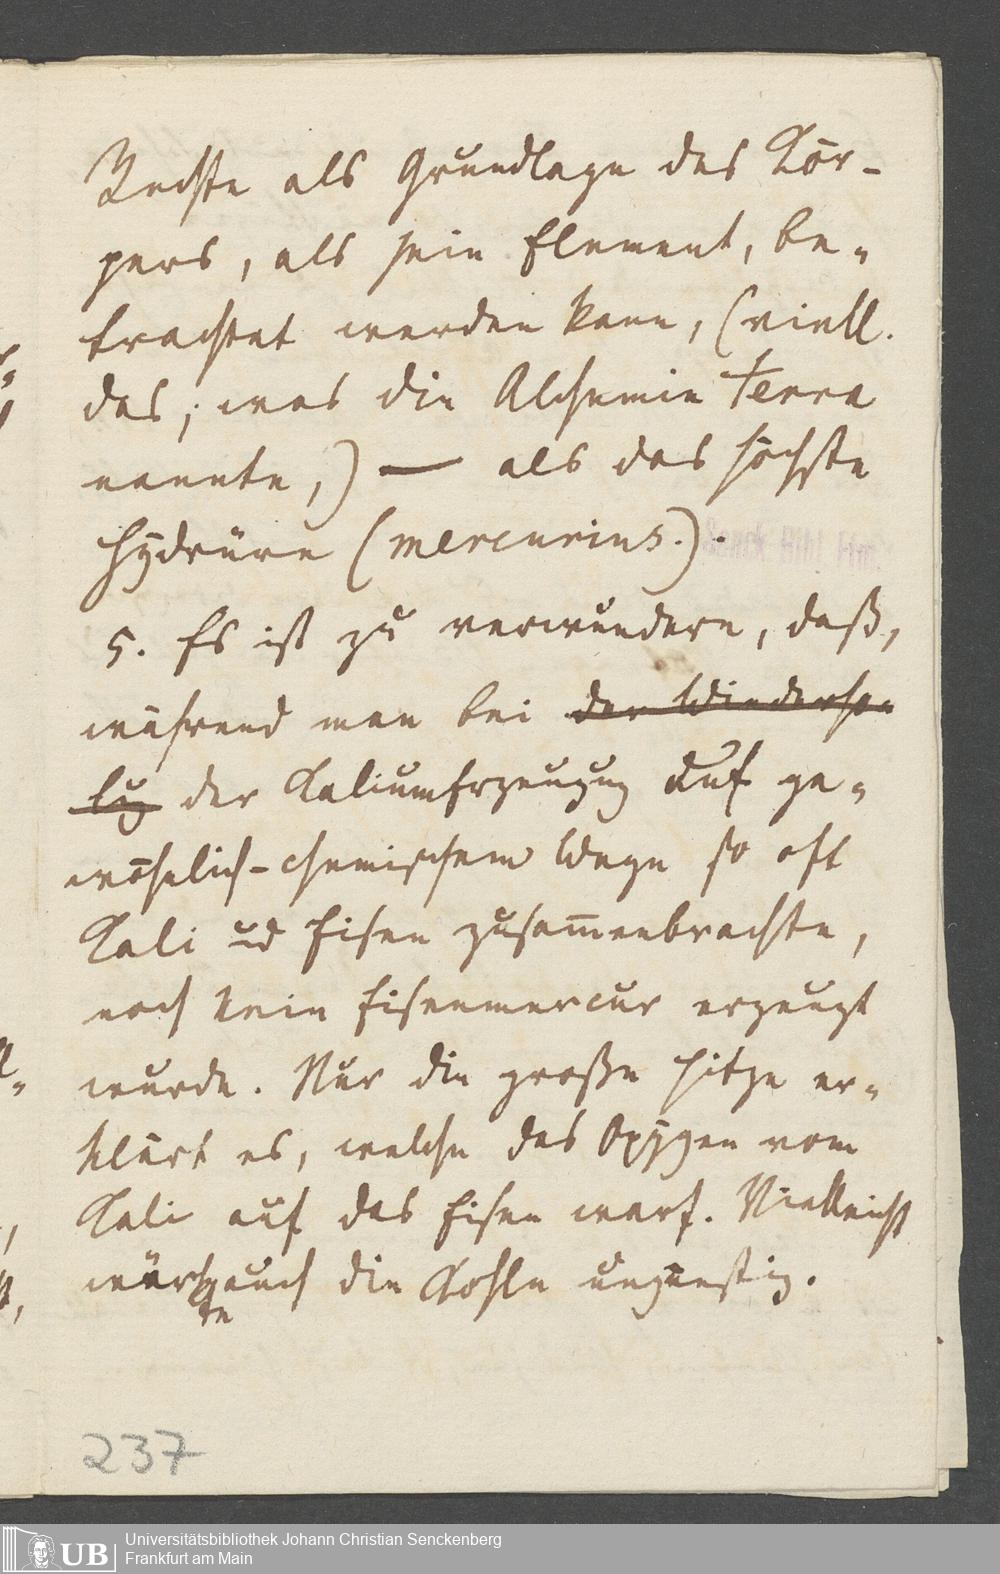 Rechte als Grundlage des Kör-
pers, als sein Element, be-
trachtet werden kann, (viell.
das, was die Alchemie terra
nannte,) — als das höchste
Hydrüre (mercurius.).
5. Es ist zu verwundern, daß,
während man bei der Wiederho-
lg der KaliumErzeugug auf ge-
wöhnlich-chemischem Wege so oft
Kali ud Eisen zusam̅enbrachte,
noch kein Eisenmercur erzeugt
wurde. Nur die große Hitze er-
klärt es, welche das Oxygen vom
Kali auf das Eisen warf. Vielleicht
auch die Kohle ungünstig.
237
UB
Universitätsbibliothek Johann Christian Senckenberg
Frankfurt am Main